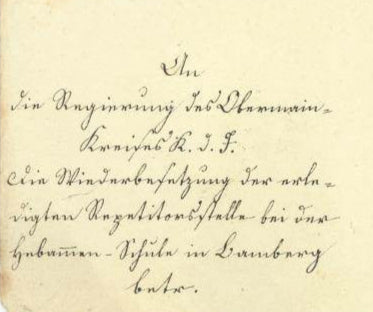 An
die Regierung des Obermain-
Kreises K. d. I.
Die Wiederbesetzung der erle-
digten Repetitorsstelle bei der
Hebam̅en-Schule in Bamberg
betr.